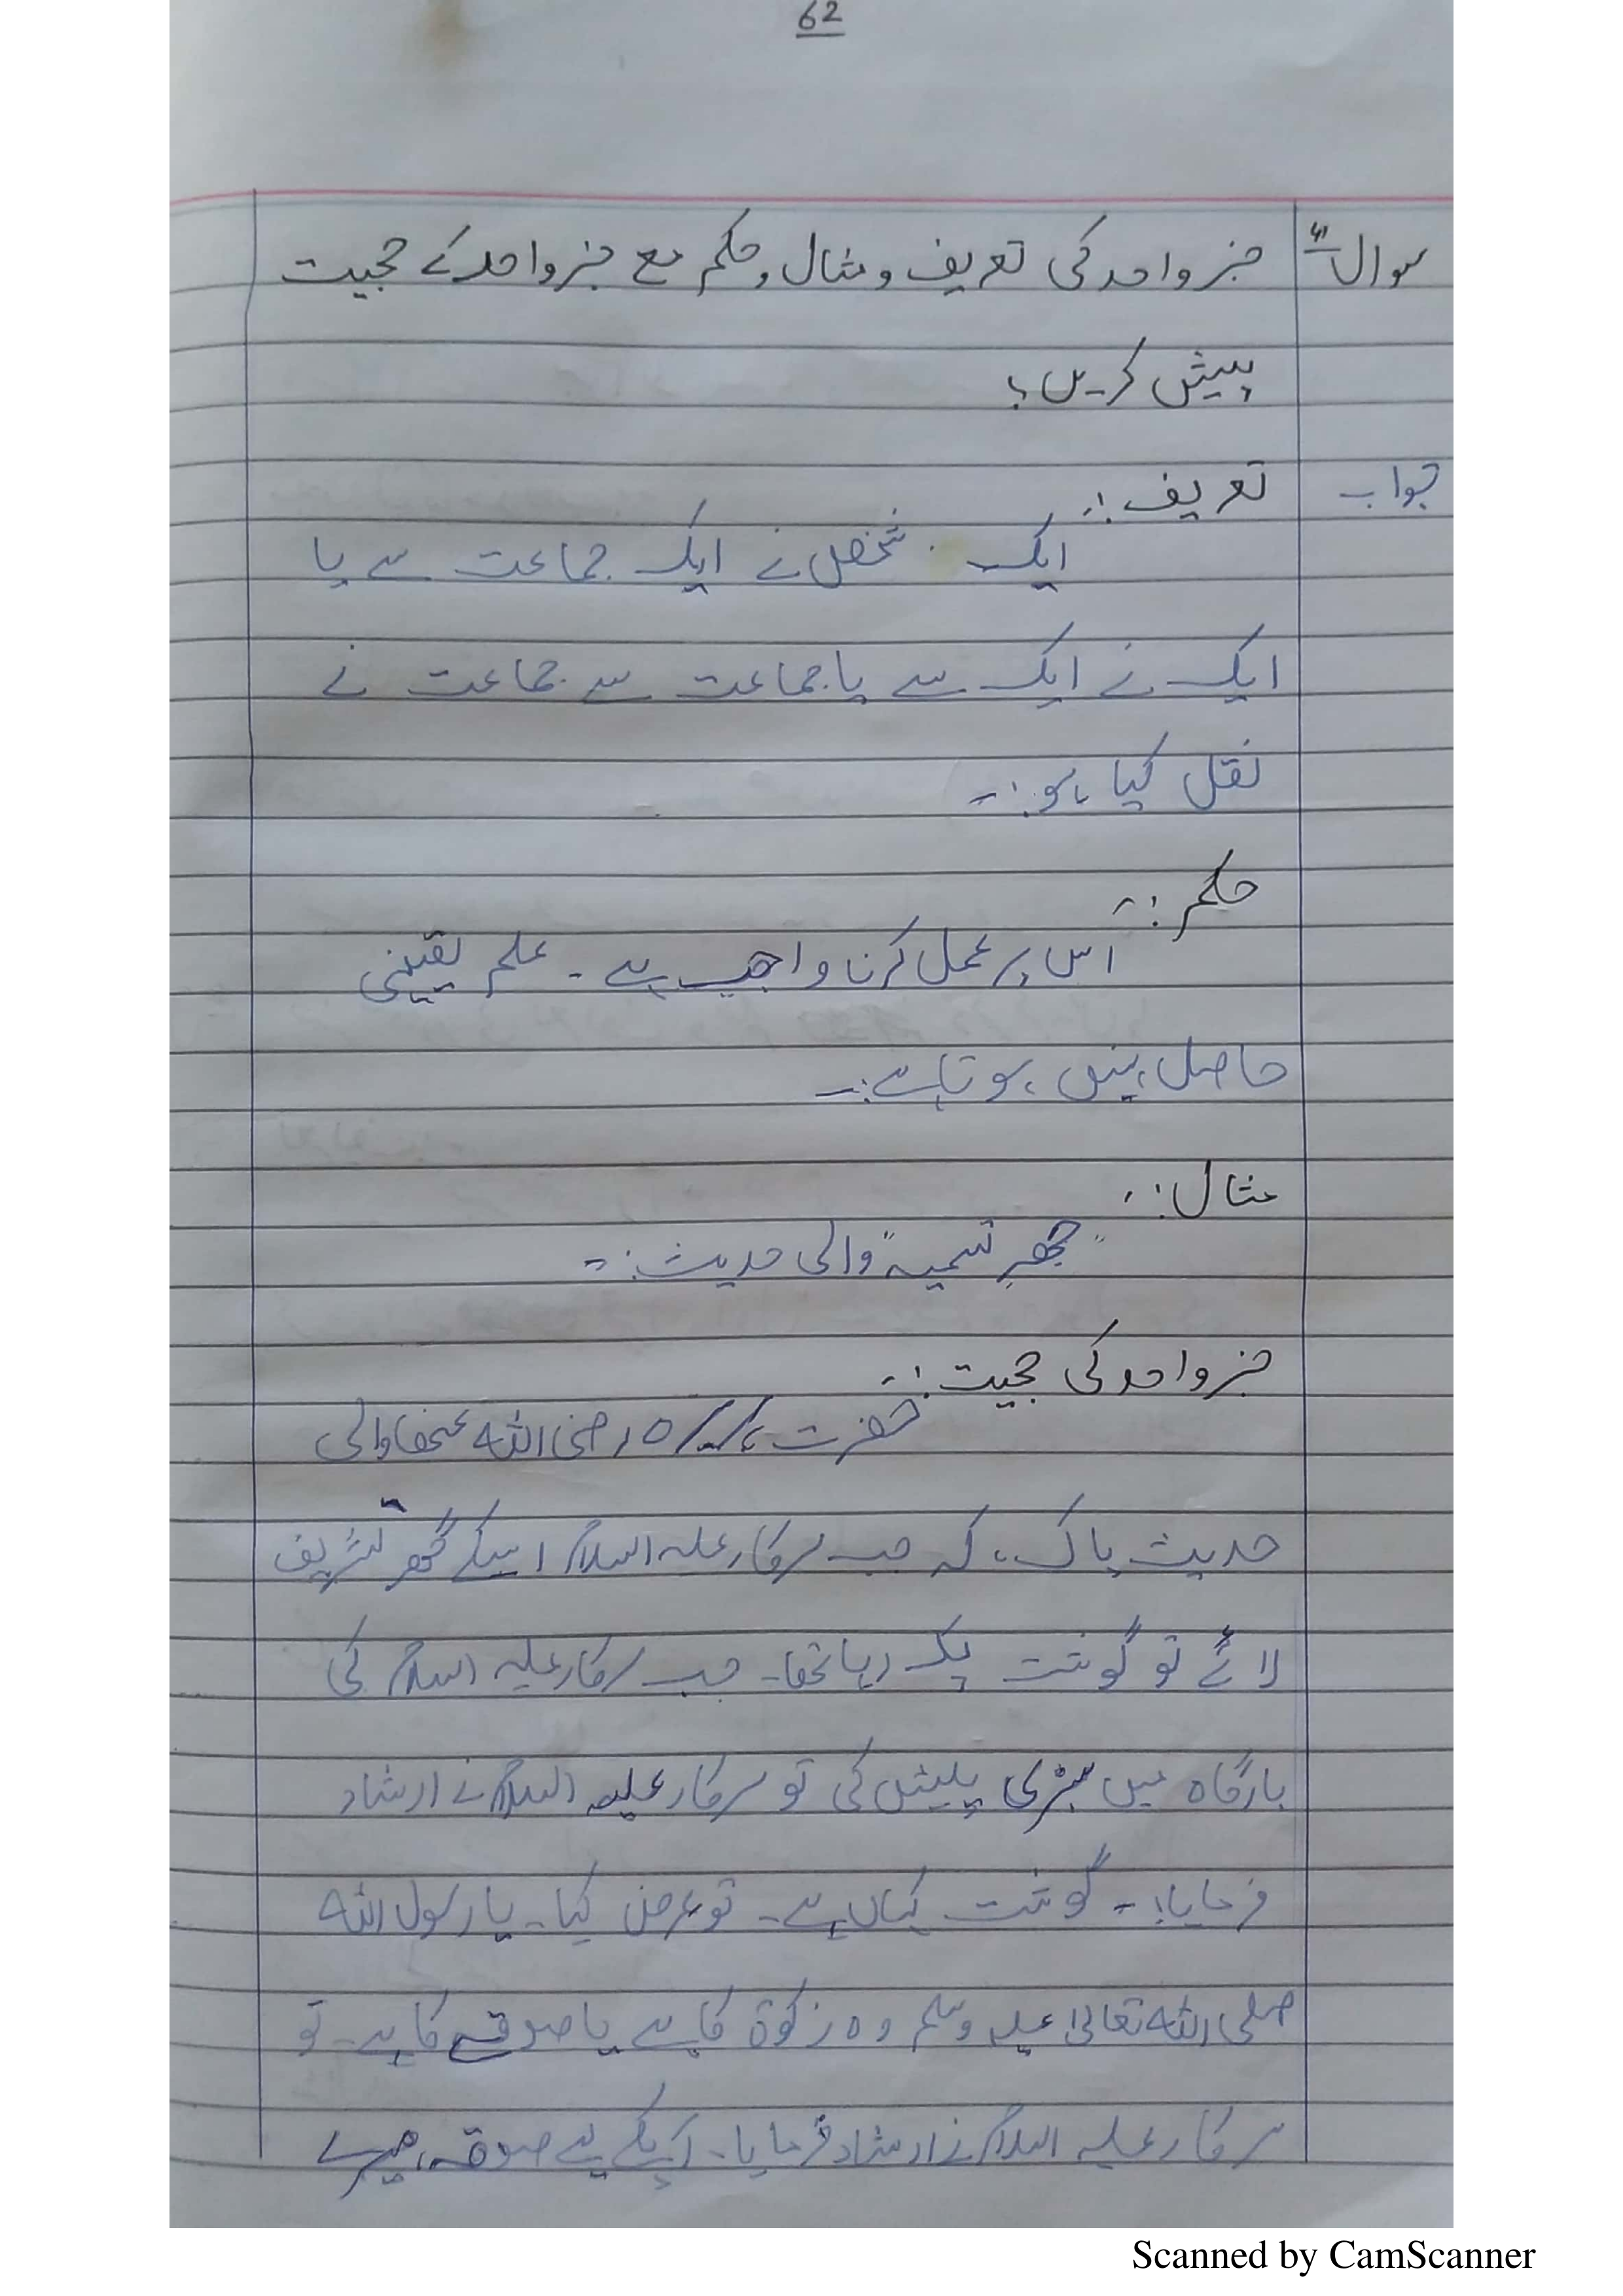 62
سوال خبر واحد کی تعریف و مثال و حکم مع خبر واحد کے حجیت
پیش کریں؟
جواب تعریف:-
ایک شخص نے ایک جماعت سے یا
ایک نے ایک سے یا جماعت سے جماعت نے
نقل کیا ہو:-
حکم:-
اس پر عمل کرنا واجب ہے - علم یقینی
حاصل نہیں ہوتا ہے:-
مثال:-
"جہرِ تسمیہ" والی حدیث:-
خبر واحد کی حجیت:-
حضرت بریرہ رضی اللہ عنھا والی
حدیث پاک، کہ جب سرکار علیہ السلام اسکے گھر تشریف
لائے تو گوشت پک رہا تھا۔ جب سرکار علیہ السلام کی
بارگاہ میں سبزی پیش کی تو سرکار علیہ السلام نے ارشاد
فرمایا:- گوشت کہاں ہے۔ تو عرض کیا۔ یا رسول اللہ
صلی اللہ تعالیٰ علیہ وسلم وہ زکوۃ کا ہے یا صدقے کا ہے۔ تو
سرکار علیہ السلام نے ارشاد فرمایا۔ آپکے لیے صدقہ، میرے
Scanned by CamScanner